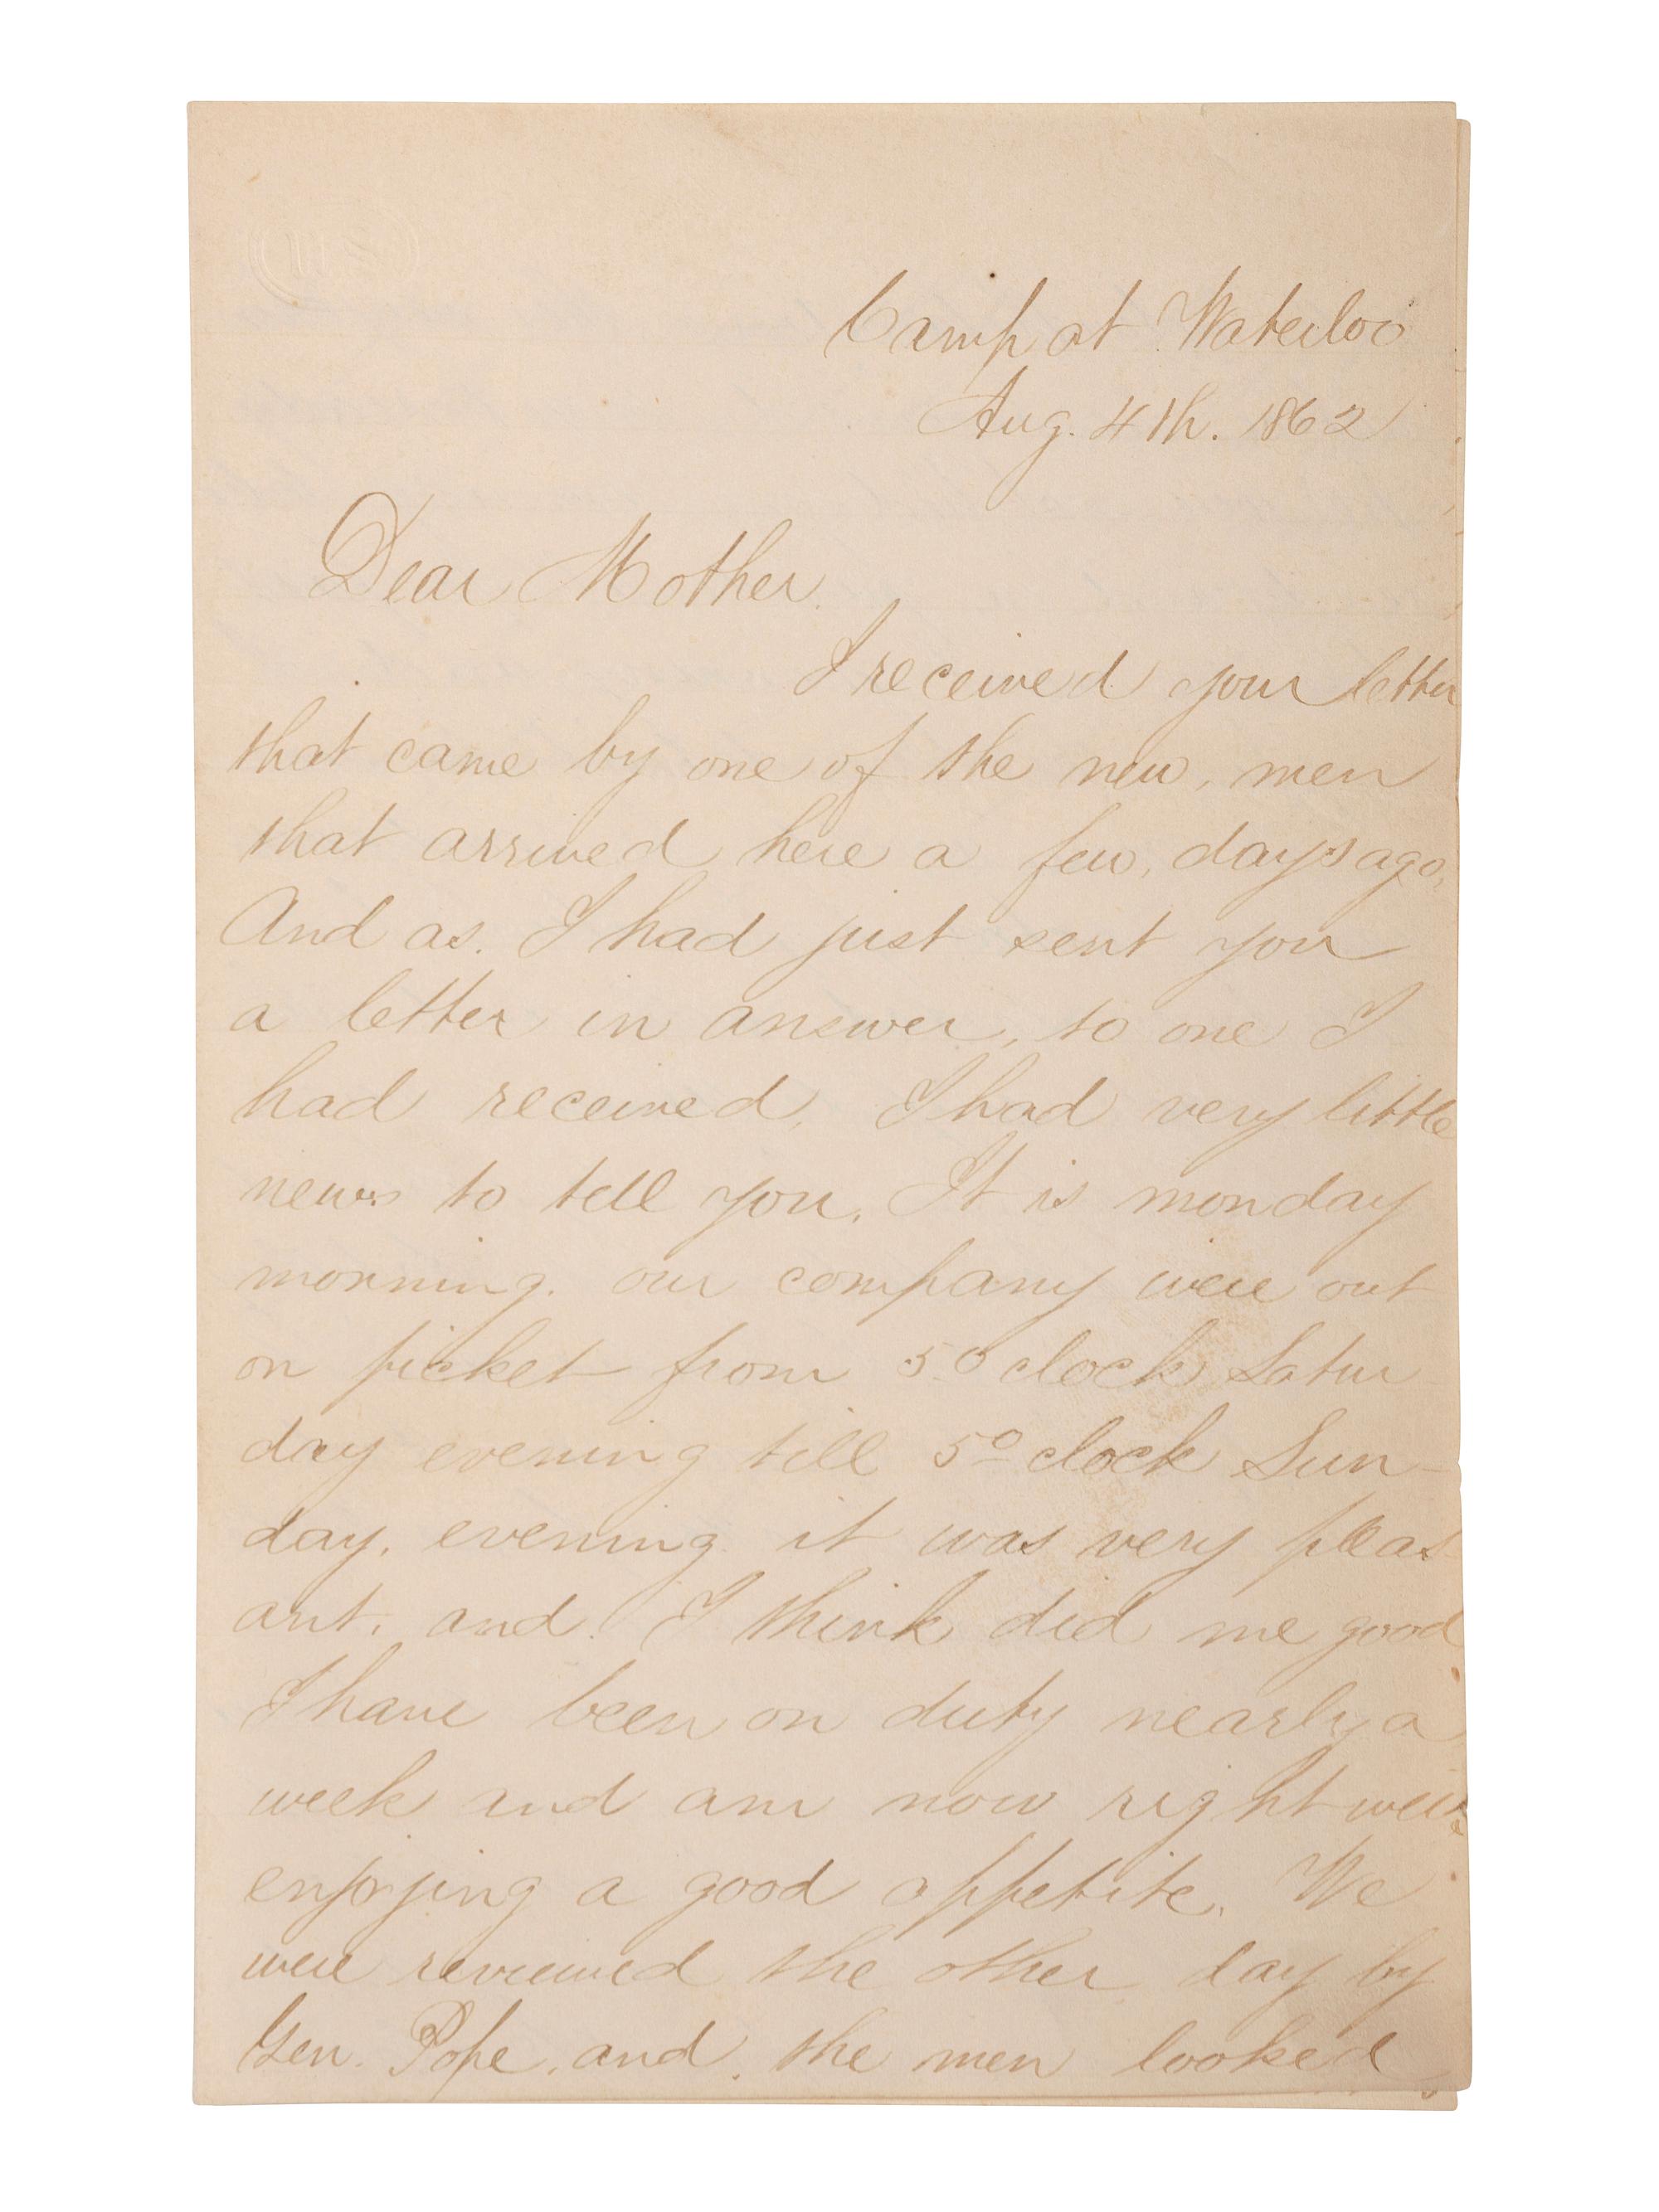 Camp at Waterloo
Aug. 4th. 1862
Dear Mother.
I received your letter
that came by one of the new, men
that arrived here a few, days ago,
And as. I had just sent you
a letter in answer, to one I
had received, I had very little
news to tell you. It is monday
morning. our company were out
on picket from 5 o clock Satur
day evening till 5 o clock Sun-
day. evening it was very pleas
ant. and. I think did me good
I have been on duty nearly a
week and am now right well
enjoying a good appetite. We
were reviewed the other day by
Gen. Pope. and. the men looked